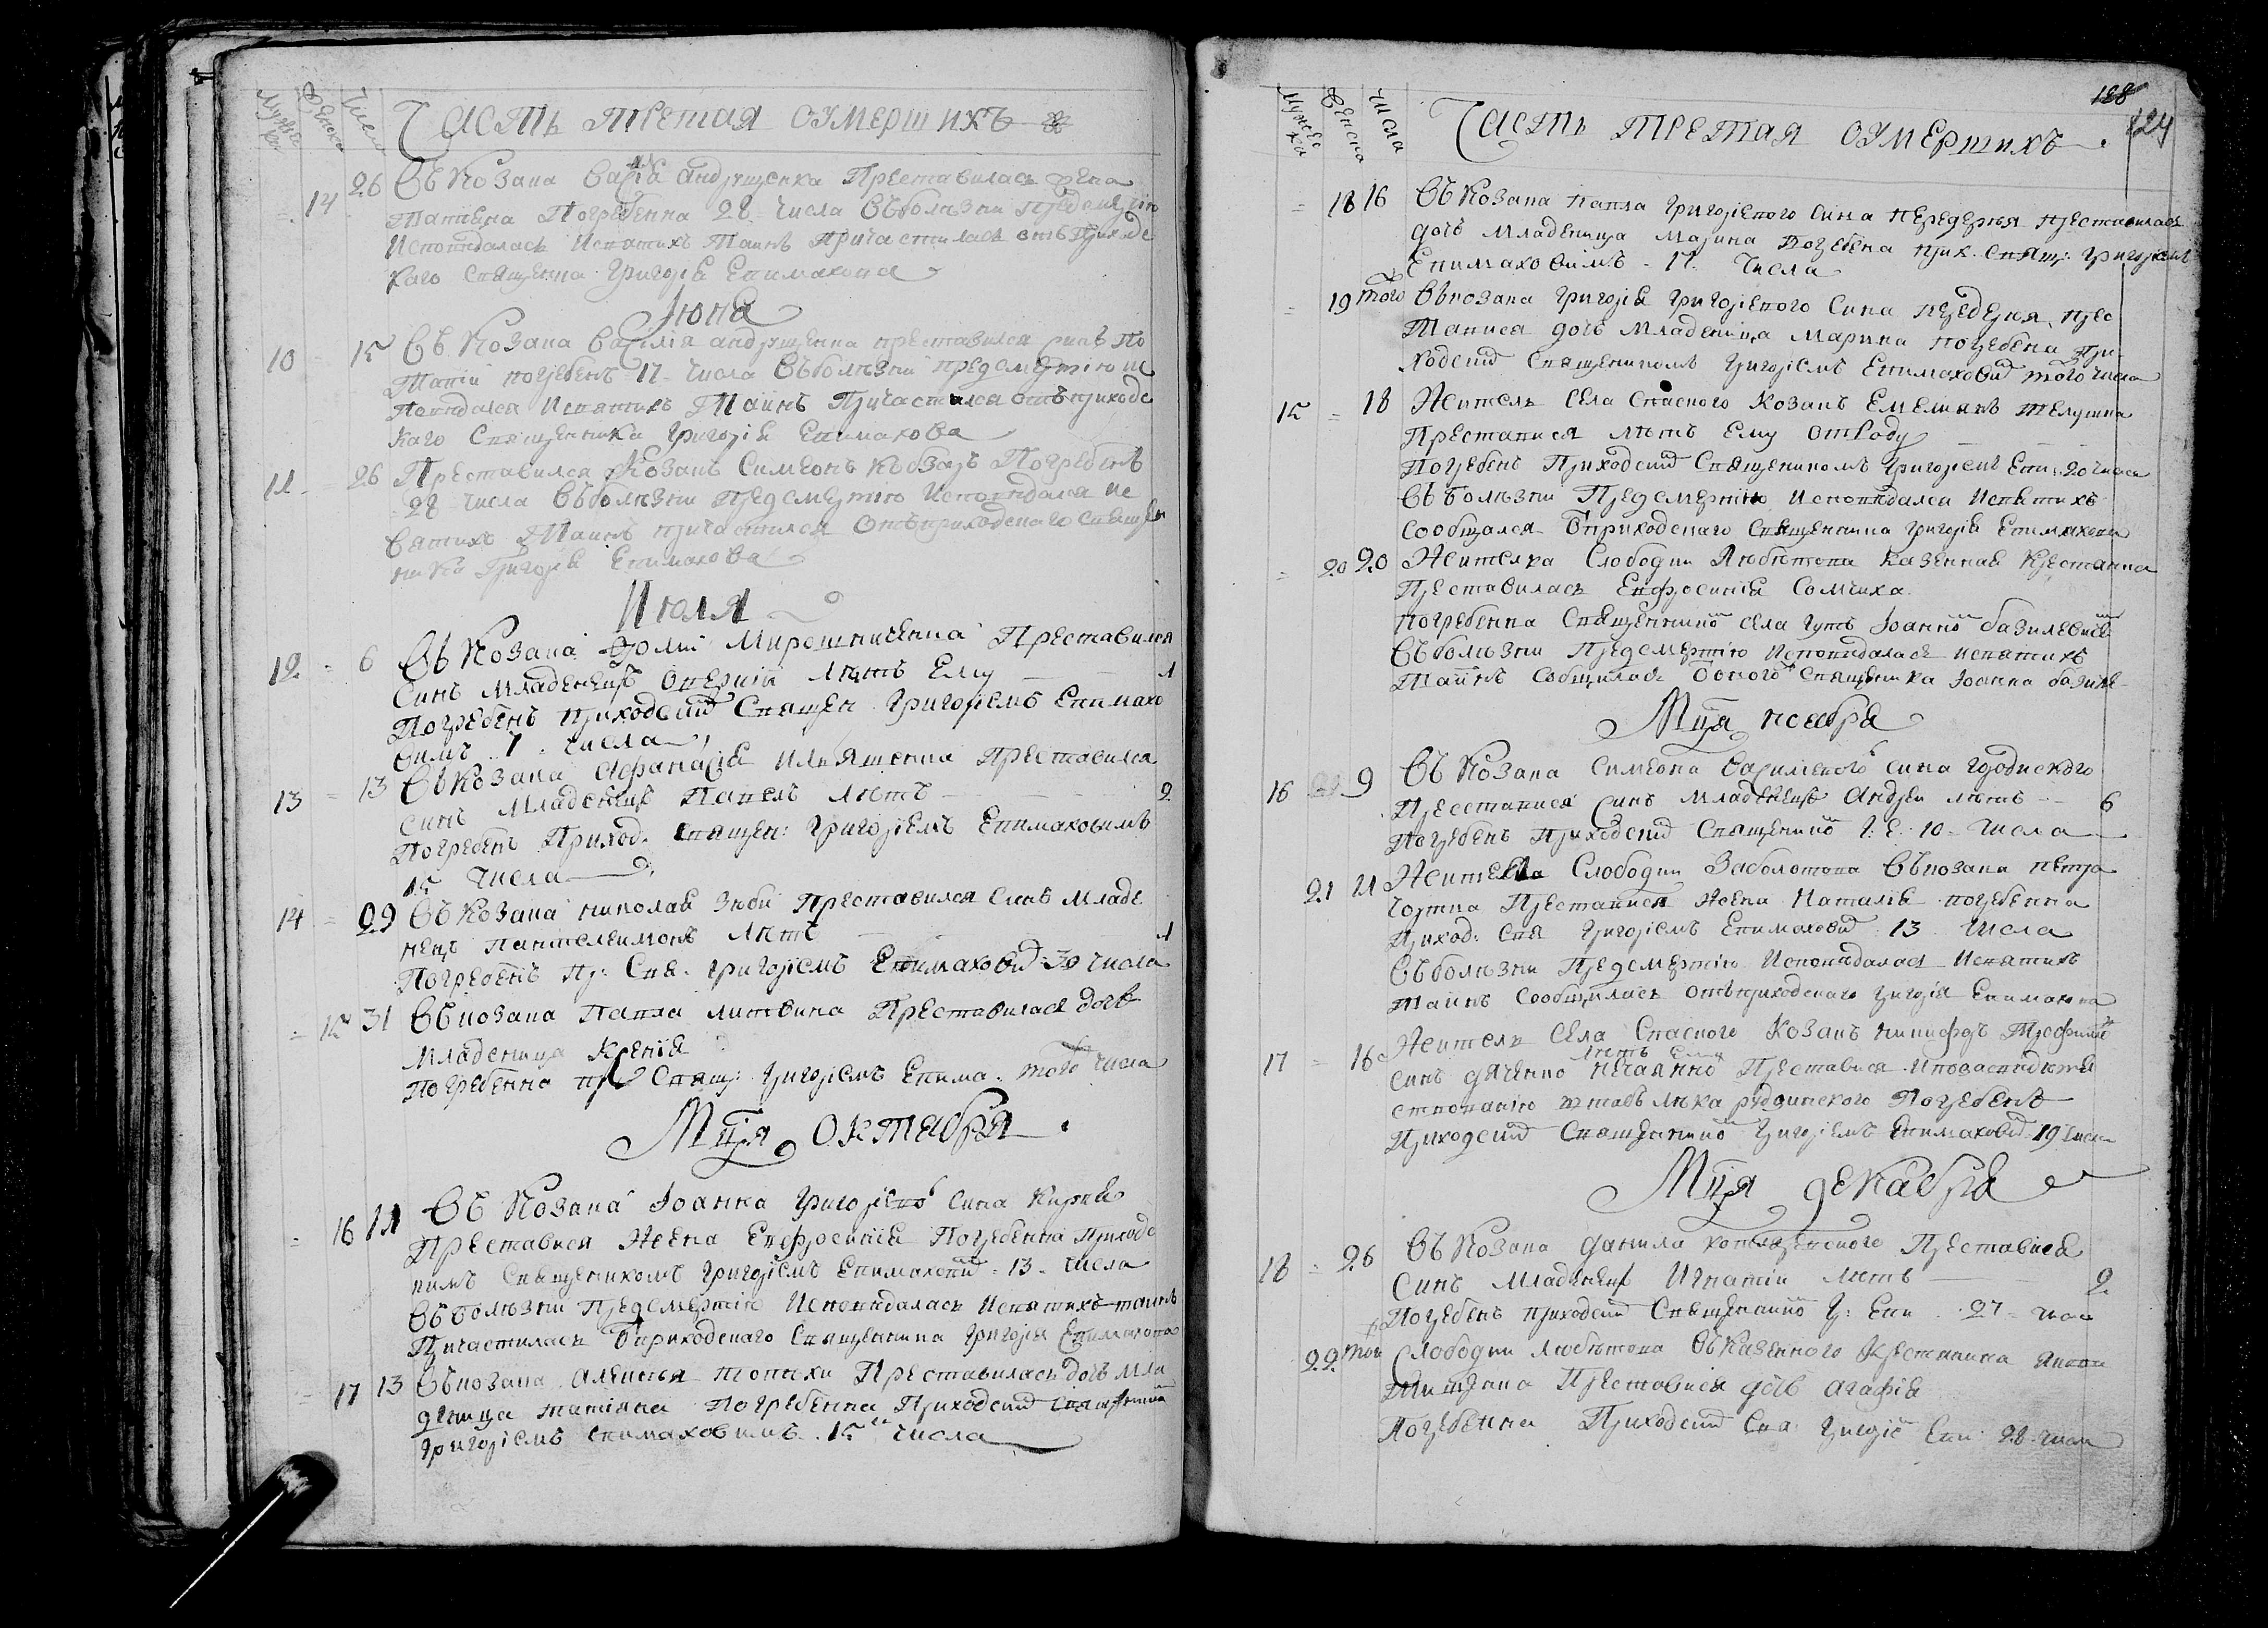 Мужеска Женска Число
Часть третая оумершихъ
14 26 Въ Козака Василія андрущенка Преставилась жена
Татіена Погребенна 28 числа Въболѣзни Предсмертію
Исповѣдалась Исвятихъ Таинъ Причастилась отъ Приходс
каго Священна Григорія Епимахова
Июня
10 15 Въ Козака Василія андрущенка преставился синъ По
тапій погребенъ 17 числа Въболѣзни предсмертію ис
повѣдался Исвятихъ Таинъ Причастился отъ приходс
каго Священника Григорія Епимахова
11 26 Преставился Козакъ Симеонъ Кобзарь Погребенъ
28 числа Въболѣзни Предсмертію Исповѣдался ис
вятихъ Таинъ причастился Отъприходскаго Священ
ника Григорія Епимахова
Июля
12 = 6 Въ Козака Фоми Мирошниченка Преставился
Синъ Младенецъ Лѣтъ Ему 1
Погребенъ приходским Священ. Григоріемъ Епимахо
вимъ 7 числа
13 = 13 Въ Козака Афанасія Ильяшенка Преставился
синъ Младенецъ Павелъ Лѣтъ 2
Погребенъ Приход. Священ: Григоріемъ Епимаховимъ
15 числа
14 = 29 Въ Козака николая Зюби Преставился Синъ Младе
нецъ Пантелеимонъ Лѣтъ 1
Погребенъ Пр: Свя. Григоріемъ Епимаховим 30 числа
= 15 31 Въ козака Павла литвина Преставилася дочь
Младеница Ксенія
Погребенна пр Свящ: Григоріемъ Епима. того числа
Мця октября
= 16 11 Въ Козака Іоанна Григоріево сина Кирпи
Преставися Жена Евфросинія Погребенна Приходс
кимъ Священикомъ Григоріемъ Епимаховим 13 числа
Въболѣзни Предсмертію Исповѣдалась Исвятихъ таинъ
Причастилась Ѿприходскаго Священника Григорія Епимахова
= 17 13 Въ козака Алексѣя топчхи Преставилась дочь Мла
деница татіяна Погребенна Приходским Священникомъ
Григоріемъ епимаховимъ 15 числа
128
124
Мужеска Женска Числа
Часть третая оумершихъ
= 18 16 Въ Козака павла григоріевого сина передерѣя преставилась
дочь Младеница Марина погребена прих. Свящ: Григоріемъ
Епимаховимъ 17 числа
= 19 того Въ козака Григорія Григоріевого Сина передерѣя прес
тавися дочь Младеница Марина погребена При
ходским Священикомъ Григоріемъ Епимаховим того числа
15 = 18 Житель села Спаского Козакъ Емелиянъ Телушка
Преставися лѣтъ Ему отроду
Погребенъ Приходским Священикомъ Григоріемъ Епи: 20 числа
Въболѣзни Предсмертію Исповѣдался Исвятихъ
сообщался Ѿприходскаго Священника Григорія Епимахова
= 20 20 Жителка Слободки Любитова казенная Крестянка
Преставилась Евфросинія Сомчиха
погребенна Священникомъ села гутъ Іоанномъ базилевичемъ
Въболѣзни Предсмертію Исповѣдалася исвятихъ
таинъ Собщилась Ѿоного Священика Іоанна базиле
Мця ноября
16 9 Въ Козака Симеона Василіевого сина городиского
Преставися Синъ Младенецъ Андреи лѣтъ 6
Погребенъ Приходским Священикомъ Г: Е: 10 числа
21 11 Жителя Слободки Заболотова Въ козака петра
Преставися Жена Наталія погребенна
Приход: Свя Григоріемъ Епимаховим 13 числа
Въболѣзни Предсмертію Исповѣдалася Исвятихъ
таинъ Сообщилась отъприходскаго Григорія Епимахова
17 = 16 Житель Села Спаского Козакъ никифоръ Трофимов
лѣтъ ему
синъ дяченко нечаянно Преставися Ипозасвидѣте
ствованію штабъ лѣка рудинского Погребенъ
Приходским Священникомъ Григоріемъ Епимаховим 19 числа
Мця декабря
18 = 26 Въ Козака данила котляревского Преставися
Синъ Младенецъ Игнатій лѣтъ 2
Погребенъ приходским Священникомъ Г: Епи 27 числ
22 того Слободки Любитова Въ Казенного Крестянина
Преставися дочь агафія
Погребенна Приходским Свя. Григоріе Епи 28 числа